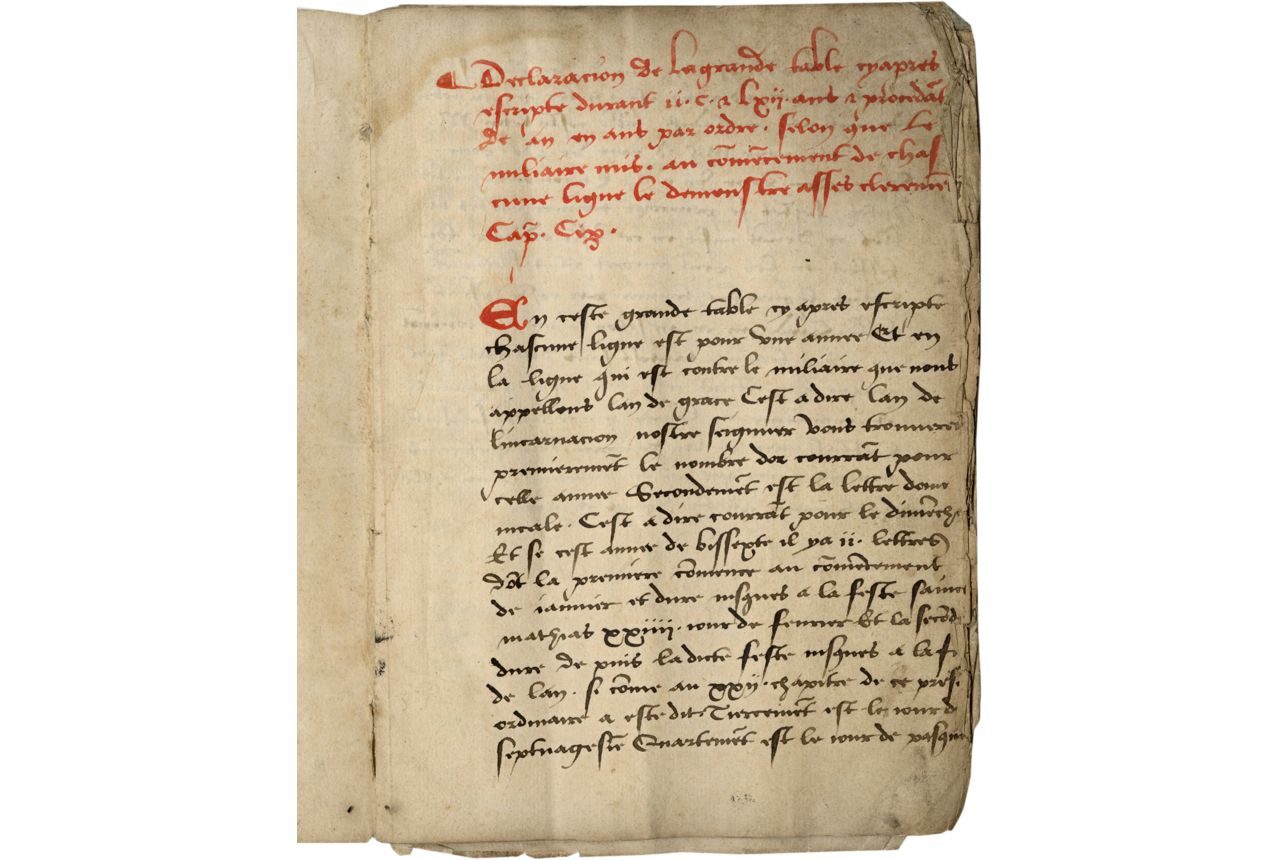 Declaracion de la grande table cy apres
escripte durant ii. c. & lxii. ans & procedãt
de an en ans par ordre. selon que le
miliaire mis. au cõmẽcement de chas
cune ligne le demonstre asses cleremẽ
Cap̃. Cix.
En ceste grande table cy apres escripte
chascune ligne est pour vne annee Et en
la ligne qui est contre le miliaire que nous
appellons lan de grace Cest a dire lan de
lincarnacion nostre seigneur vous trouueres
premieremẽt le nombre dor courrãt pour
celle annee Secondemẽt est la lettre domi
nicale. Cest a dire courrãt pour le dimẽche
Et se cest annee de bissexte il y a ii. lettres
dõt la premiere cõmence au cõmẽcement
de ianuier et dure iusques a la feste sainct
mathias xxiiii. iour de feurier Et la secõde
dure de puis ladicte feste iusques a la fi
de lan. si cõme au xxii. chapitre de ce pres.
ordinaire a este dit. Tiercemẽt est le iour d
septuagesiẽ Quartemẽt est le iour de pasques